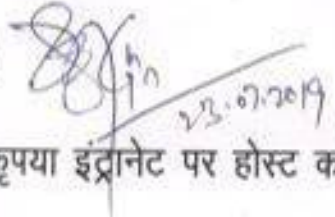 23.07.2019
कृपया इंट्रानेट पर होस्ट क